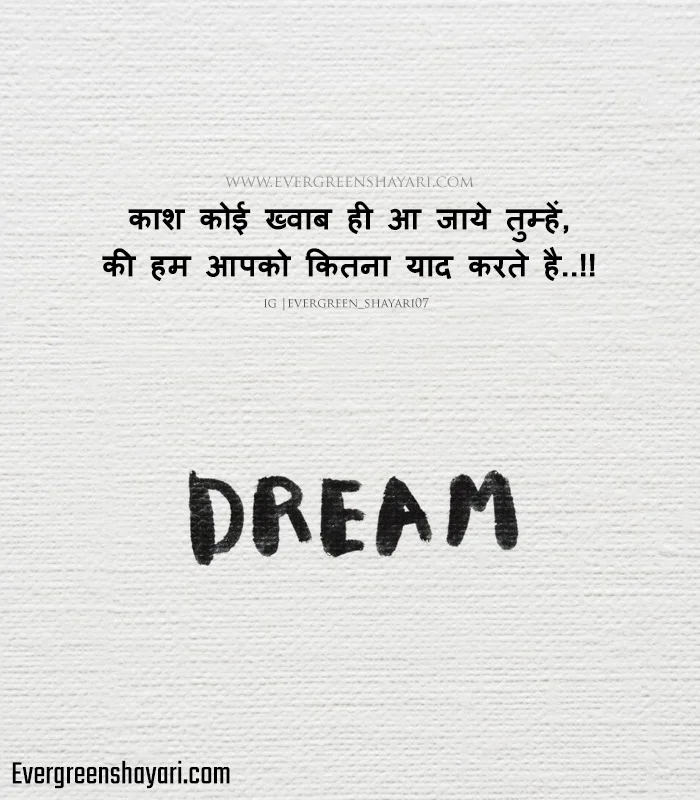 WWW.EVERGREENSHAYARI.COM
काश कोई ख्वाब ही आ जाये तुम्हें,
की हम आपको कितना याद करते है..!!
IG | EVERGREEN_SHAYARI07
DREAM
Evergreenshayari.com